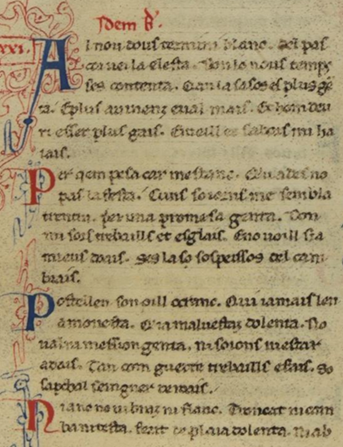 Idem b͂.
xxi.
Al nou dous termini blanc. Del pas
cor vei la elesta. Don lo nous temps
ses contenta. Can la sasos es plus gē
ta. Eplus auinenz eual mais. Et hom deu
ri esser plus gais. Emeill es sabors mi ha
iais.
Per qem pesa car mestanc. Qeu ades no
pas la festa. Cuns sol iorns me sembla
trenta. per una promesa genta. Don
mi sors trebaills et esglais. Eno uoill sia
mieus doais. Ses la so sospeissos del cam
brais.
Postellen son oill ecranc. Qui iamais len
amonesta. Qia maluestaz dolenta. No
ualra mession genta. ni soiorns ni estar
adais. Tan com guerre trebaills efais. So
sapchal seingner de roais.
Ni anc no ui braz ni flanc. Trencat ni cam
ba ni testa. ferit de plaia dolenta. Ni ab